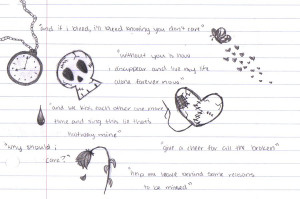 "and if i bleed, i'll bleed knowing you don't care"
"without you is how i
disappear and live my life
alone forever now"
"and we kiss each other one more
time and sing this lie that's
halfway mine"
"why should i
care?"
"give a cheer for all the broken"
"help me leave behind some reasons
to be missed"